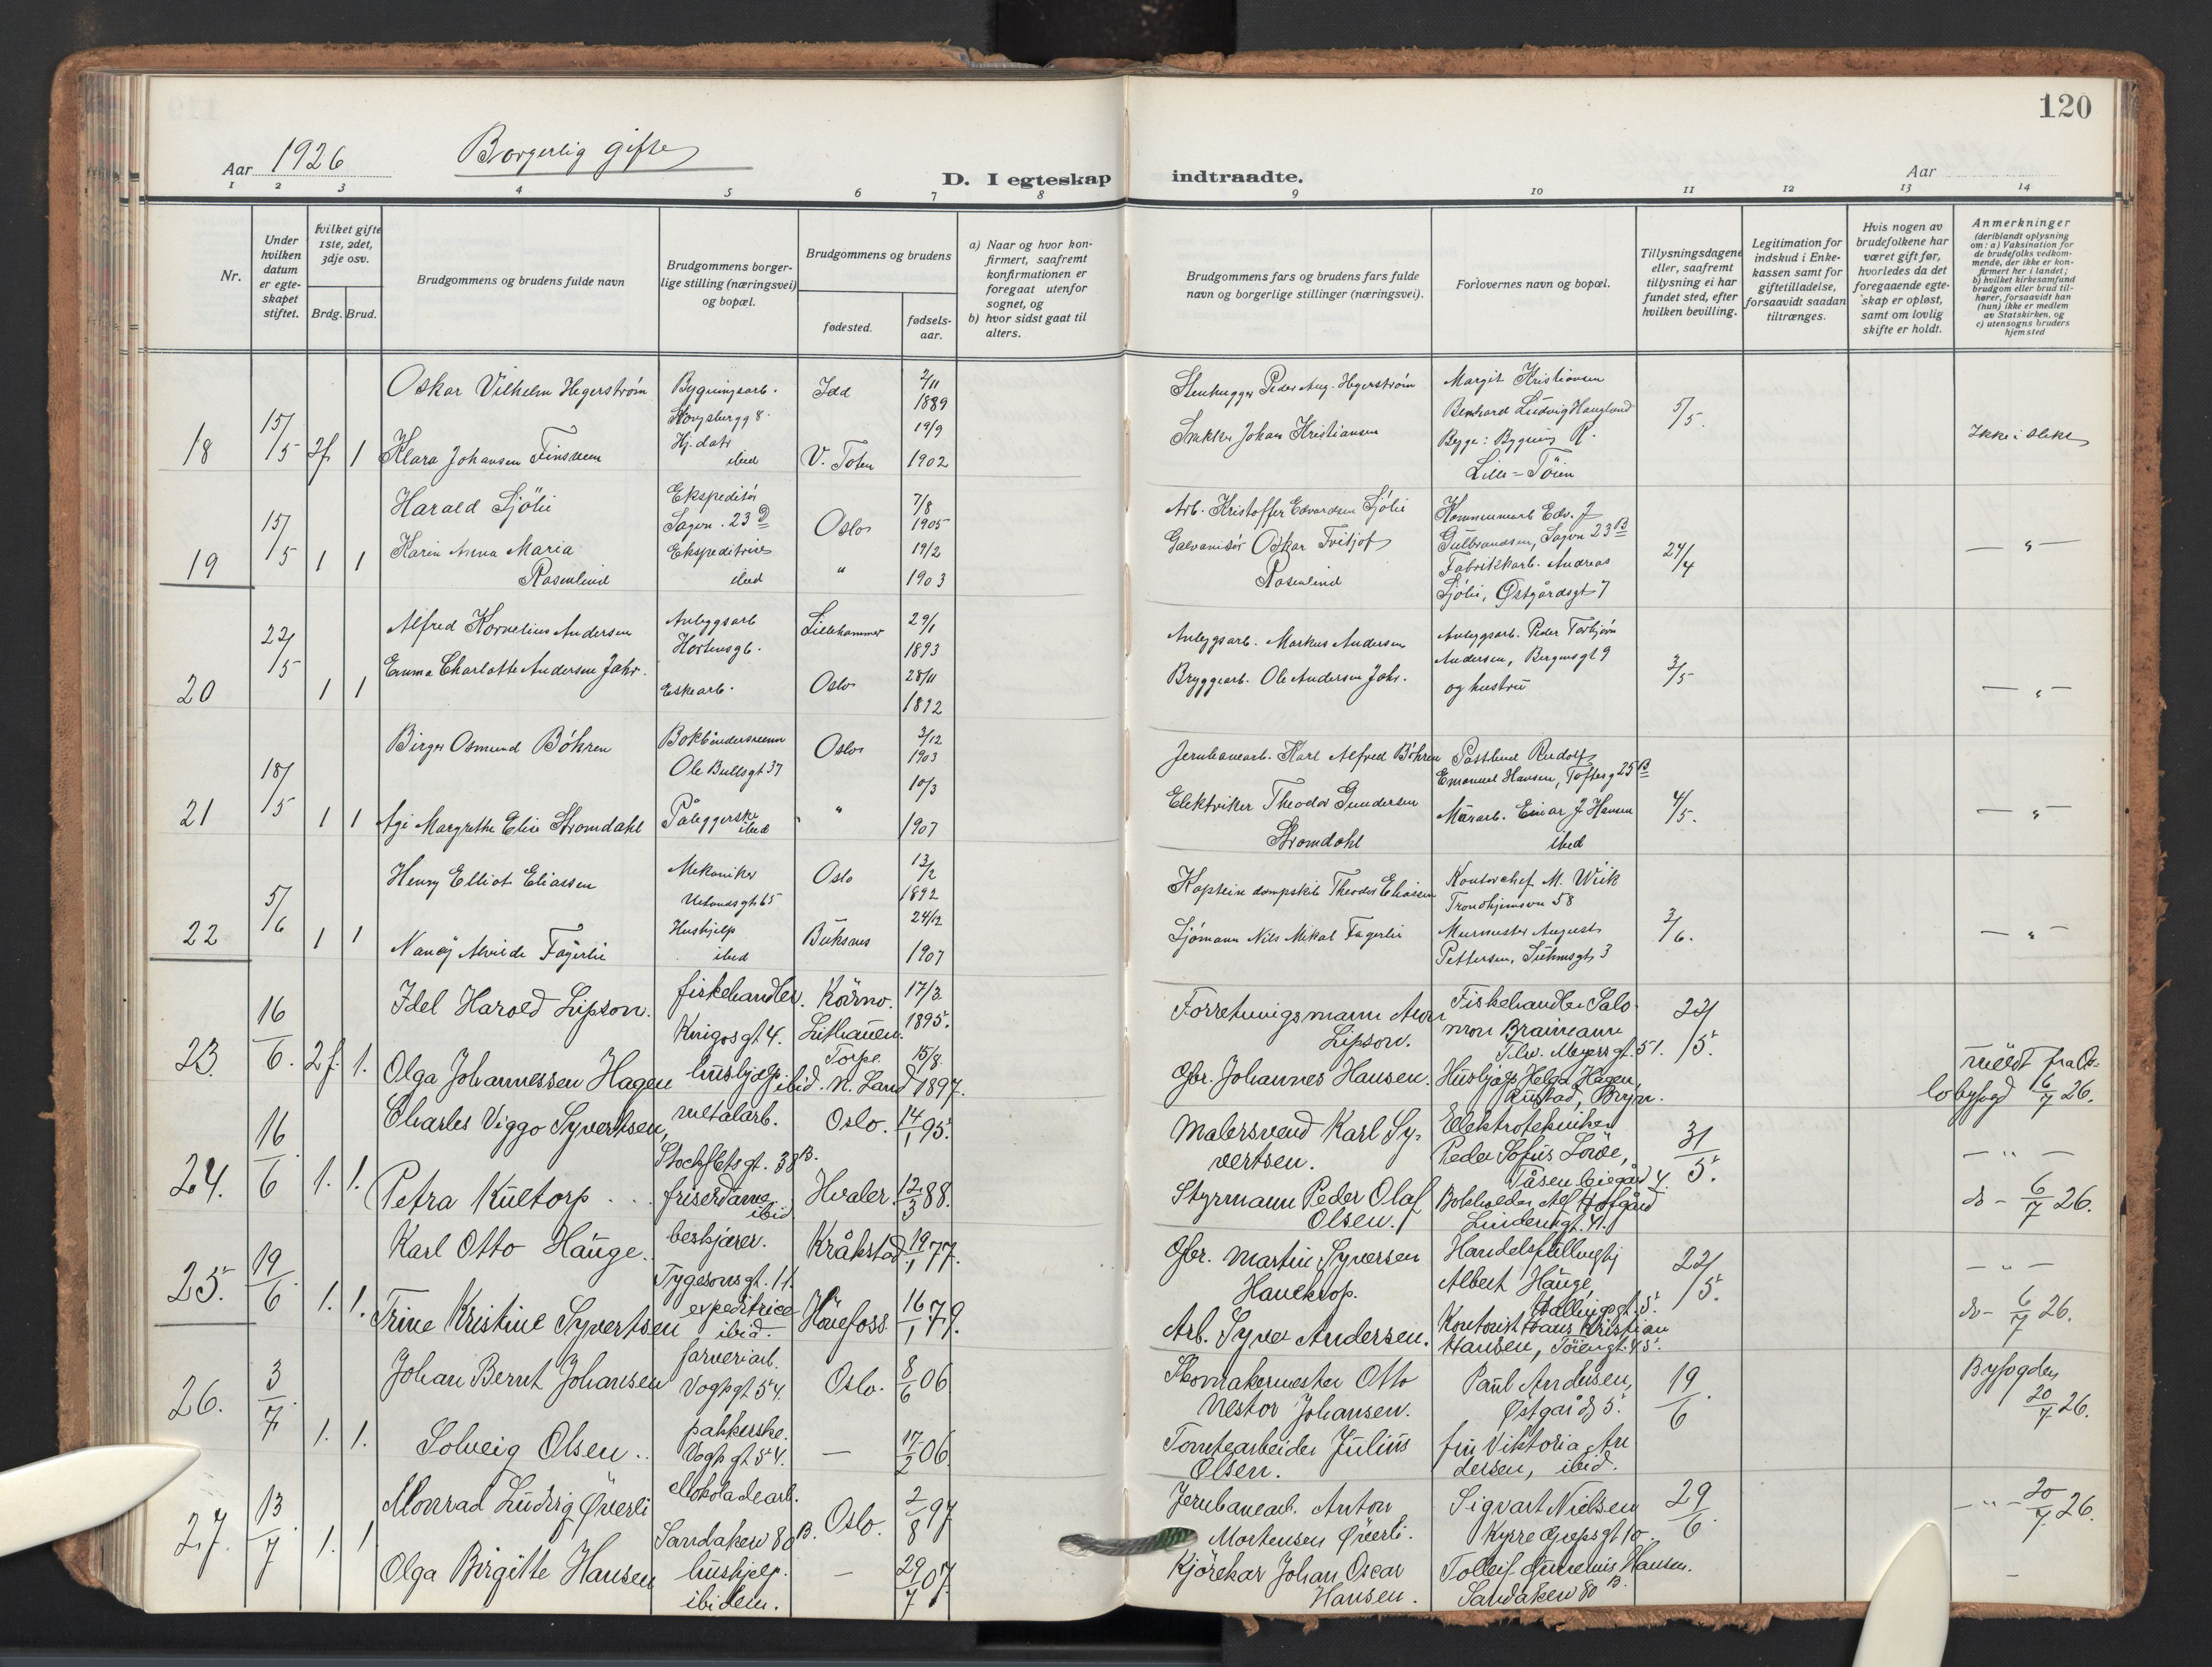 120
Aar 1926 Borgerlig gifte
D. I egteskap indtraadte.
Aar
1 2 3 4 5 6 7 8 9 10 11 12 13 14
Nr.
Under hvilken datum er egteskapet stiftet.
Hvilket gifte 1ste, 2det, 3dje osv.
Brdg. Brud.
Brudgommens og brudens fulde navn
Brudgommens borgerlige stilling (næringsvei) og bopæl.
Brudgommens og brudens
fødested.
fødselsaar.
a) Naar og hvor konfirmert, saafremt konfirmationen er foregaat utenfor sognet, og
b) hvor sidst gaat til alters.
Brudgommens fars og brudens fars fulde navn og borgerlige stillinger (næringsvei).
Forlovernes navn og bopæl.
Tillysningsdagene eller, saafremt tillysning ei har fundet sted, efter hvilken bevilling.
Legitimation for indskud i Enkekassen samt for giftetilladelse, forsaavidt saadan tiltrænges.
Hvis nogen av brudefolkene har været gift før, hvorledes da det foregaaende egteskap er opløst, samt om lovlig skifte er holdt.
Anmerkninger
(deriblandt oplysning om: a) Vaksination for de brudefolks vedkommende, der ikke er konfirmert her i landet;
b) hvilket kirkesamfund brudgom eller brud tilhører, forsaavidt han (hun) ikke er medlem av Statskirken, og
c) utensogns bruders hjemsted
18 15/5 2f 1
Oskar Vilhelm Hegerstrøm Bygningsarb. Idd 2/11 1889
Klara Johansen Finsveen Hj. datr ibid V. Toten 19/9 1902
Stenhugger Peder Aug. Hegerstrøm
Snekker Johan Kristiansen
Margit Kristiansen
Bernhard Ludvig Haugland
Lille-Tøien
5/5. Ikke i slekt
19 15/5 1 1
Harald Sjölie Ekspeditör Sagvn. 23 D Oslo 7/8 1905
Karin Anna Maria Rosenlind Ekspeditrise ibid " 19/2 1903
Arb. Kristoffer Edvardsen Sjölie
Galvanisör Oskar Fritjof Rosenlind
Kommunearb. Edv. J Gulbrandsen, Sagvn 23 B
Fabrikkarb. Andreas Sjölie, Østgårdsgt 7
24/4 — " —
20 22/5 1 1
Alfred Kornelius Andersen Anleggsarb Hortensgt. Lillehammer 29/1 1893
Emma Charlotte Andersen Jahr. Eskearb. Oslo 28/11 1892
Anlegsarb. Markus Andersen
Bryggearb. Ole Andersen Jahr.
Anleggsarb. Peder Torbjørn
Andersen, Bergensgt 9
og hustru
3/5 — " —
21 18/5 1 1
Birger Osmund Böhren Bokbindersvenn Ole Bullsgt 37 Oslo 3/12 1903
Agi Margrethe Elise Stromdahl Påleggerske ibid " 10/3 1907
Jernbanearb. Karl Alfred Böhren
Elektriker Theodor Gundersen Stromdahl
Postbud Rudolf Emanuel Hansen, Toftesg 25 B
Murarb. Einar J. Hansen ibid
4/5. — " —
22 5/6 1 1
Henry Elliot Eliassen Mekaniker Uelandsgt 65 Oslo 13/2 1892
Nancy Alvilde Fagerlie Hushjelp ibid Buksnes 24/12 1907
Kaptein dampskib Theodor Eliassen
Sjömann Nils Mikal Fagerlie
Kontorchef M. Wiik
Trondhjemsvn 58
Murmester August
Pettersen, Suhmsgt. 3
3/6. — " —
23. 16/6. 2f. 1.
Idel Harold Lipson. fiskehandler. Krigsgt 4. Kovno. Lithauen. 17/3. 1895.
Olga Johannessen Hagen hushjelp. ibid. Torpe. N. Land 15/8. 1897.
Forretningsmann Aron Lipson.
Gbr. Johannes Hansen.
Fiskehandler Salomon Braimann
Thv. Meyersgt. 51.
Hushjelp Helga Hagen,
Rustad, Bryn.
22/5. meldt fra Oslo byfogd 6/7 26.
24. 16/6 1. 1.
Charles Viggo Syvertsen, metalarb. Stockfletsgt. 38 B. Oslo. 14/1 95.
Petra Kultorp . . . friserdame ibid Hvaler. 12/3 88.
Malersvend Karl Syvertsen.
Styrmann Peder Olaf Olsen.
Elektrotekniker
Peder Sofus Löwe,
Bokholder Alf Hofgård
Linderngt. 41.
31/5. — " — do - 6/7 26.
25. 19/6 1. 1.
Karl Otto Hauge. beskjærer. Tygesonsgt. 11. Kråkstad. 19/1 77.
Trine Kristine Syvertsen expeditrice ibid. Hönefoss 16/1 79.
Gbr. Martin Syversen
Arb. Syver Andersen.
Handelsfullmegtig
Albert Hauge,
Hallingsgt. 5.
Kontorist Hans Kristian
Hansen, Töiengt. 45.
22/5. — " — do - 6/7 26.
26. 3/7 1. 1.
Johan Bernt Johansen farveriarb. Vogtsgt 54. Oslo. 8/6 06
Solveig Olsen . . pakkerske. Vogtsgt 54. — 17/2 06.
Skomakermester Otto Nestor Johansen.
Tomtearbeider Julius Olsen.
Paul Andersen, Østgårdsg 5.
fru Viktoria Andersen, ibid.
19/6. Byfogden 20/7 26.
27. 13/7. 1. 1
Monrad Ludvig Överli chokoladearb. Sandakerv 80 B. Oslo. 2/8 97
Olga Birgitte Hansen hushjelp. ibidem. — 29/7 07.
Jernbanearb. Anton Mortensen Överli.
Kjörekar Johan Oscar Hansen.
Sigvart Nielsen
Kyrre Grepsgt 10.
Sandakerv 80 B.
29/6. — " — 20/7 26.